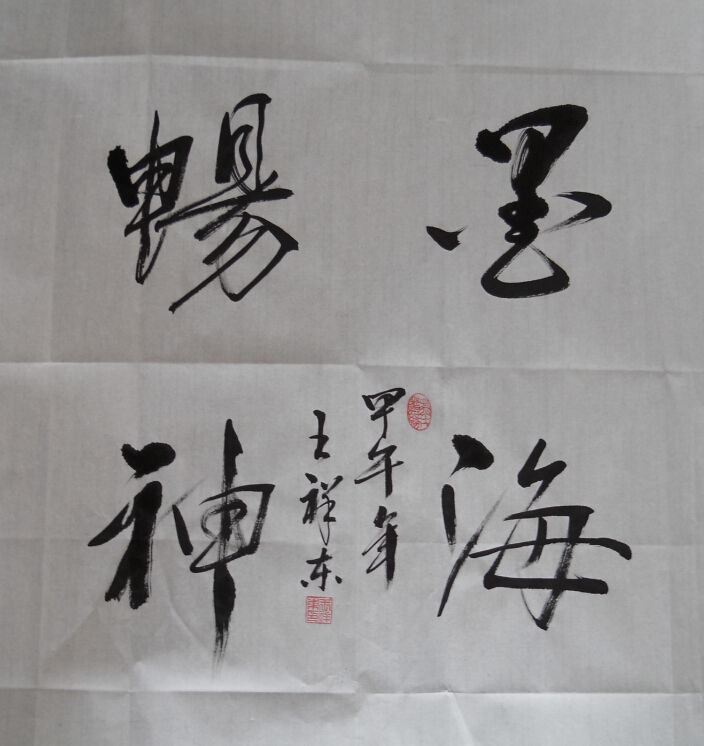 墨海
暢神
甲午年
王祥东